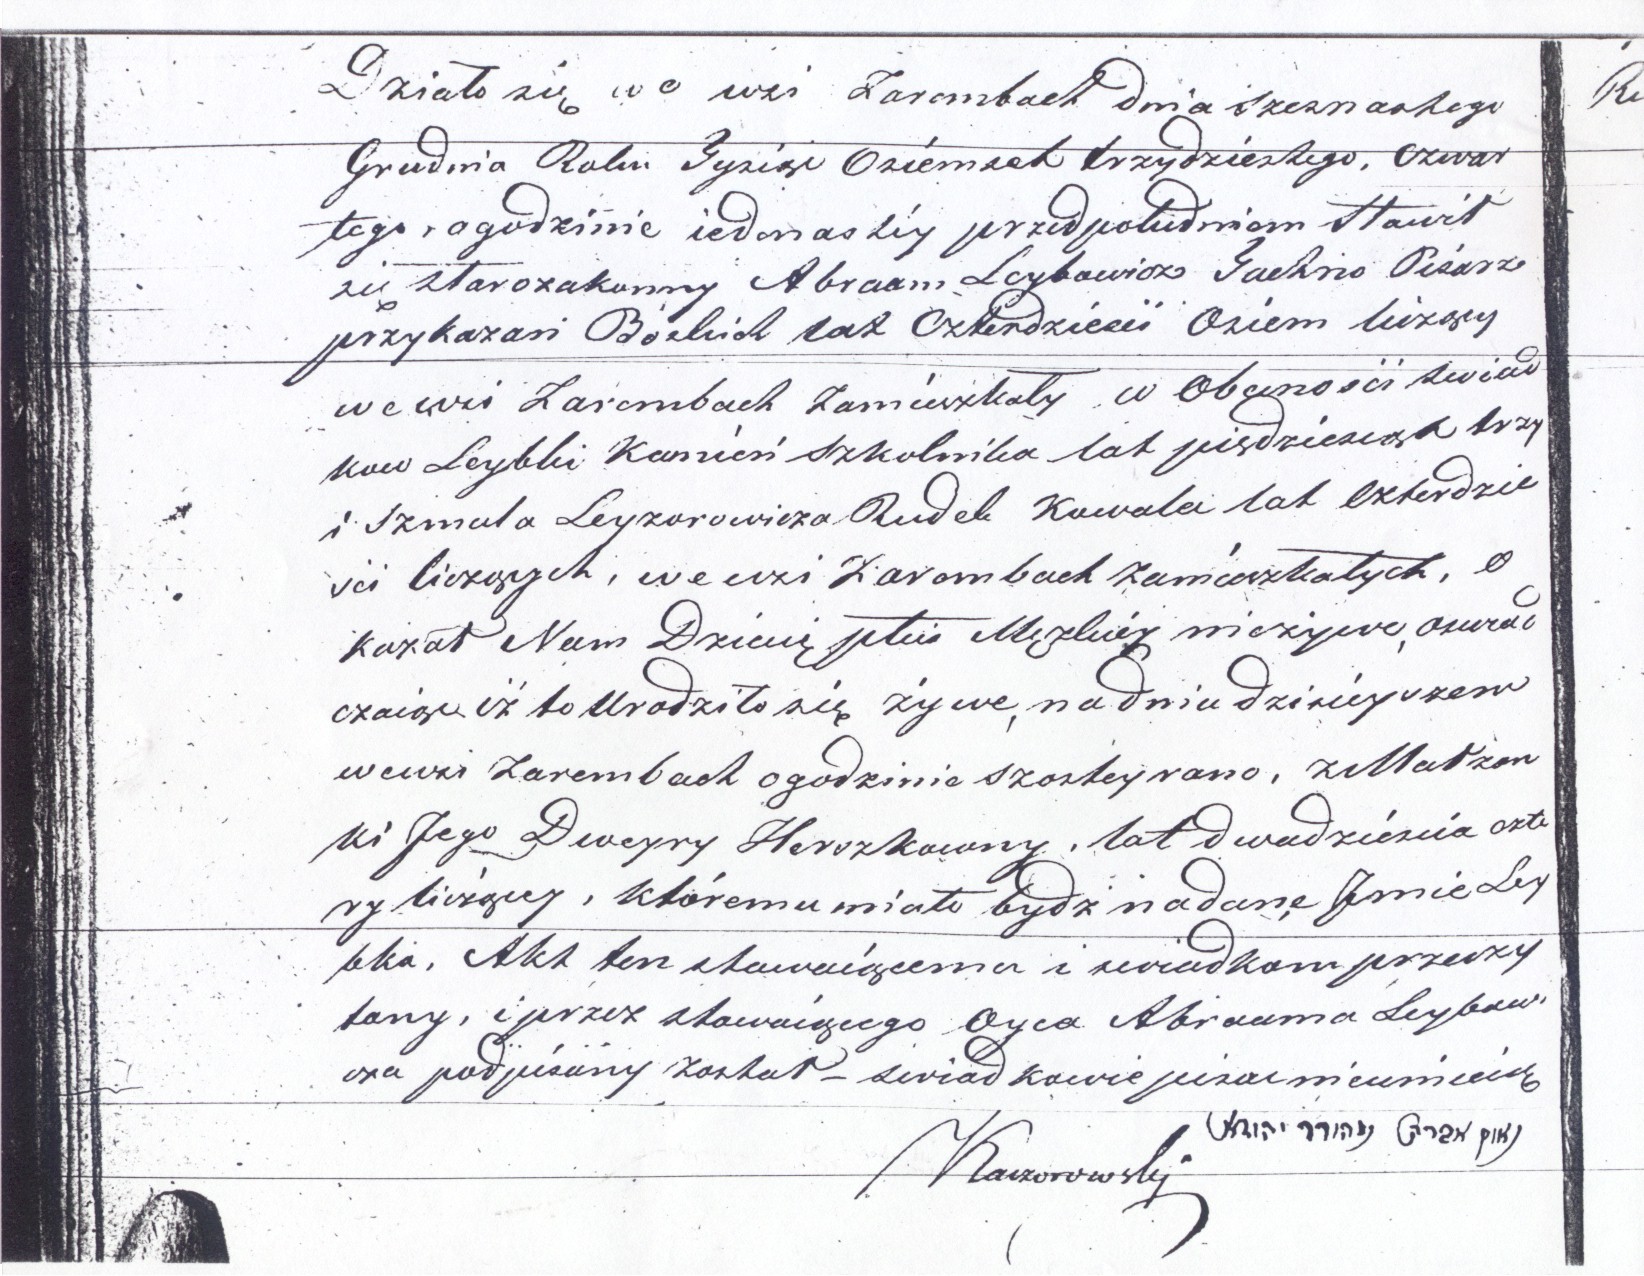 Działo się we wsi Zarembach dnia szesnastego
Grudnia Roku Tysiąc Osiemset trzydziestego, czwar
tego, o godzinie iedenastey przedpołudniem stawił
się starozakonny Abraam Leybowicz Jachno Pisarz
przykazań Boskich lat Czterdzieści Osiem liczący
we wsi Zarembach zamieszkały w Obecności swiad
kow Leybki Kamień Szkolnika lat pięćdziesiąt trzy
i Szmula Leyzorowicza Rudek Kowala lat Czterdzie
ści liczących, we wsi Zarembach zamieszkałych, o
kazał Nam Dziecię płci Męzkiey nieżywe, oswiad
czaiąc iż to urodziło się żywe, na dniu dzisieyszem
we wsi Zarembach o godzinie szostey rano, z Małżon
ki Jego Dweyry Herszkowny, lat dwadzieścia czte
ry liczącey, któremu miało bydź nadane Jmie Ley
bka, Akt ten stawaiącemu i swiadkom przeczy
tany, i przez stawaiącego Oyca Abraama Leybow.
cza podpisany został – swiadkowie pisac nieumieią
נאום אברהם
Kaczorowski
Re